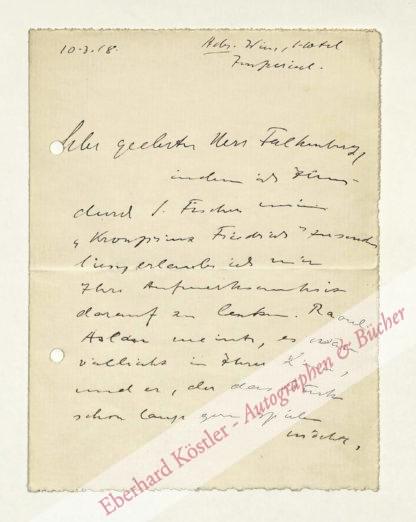 10.3.18.
Adr. Wien, Hotel
Imperial.
Sehr geehrter Herr Falkenberg,
indem ich Ihnen
durch S. Fischer meinen
„Kronprinz Friedrich"
liess, erlaube ich mir
Ihre Aufmerksamkeit
darauf zu lenken. Raoul
Aslan meint, es wäre
vielleicht in Ihrer
und er, der das Stück
schon lange gern spielen
möchte,
Eberhard Köstler - Autographen & Bücher